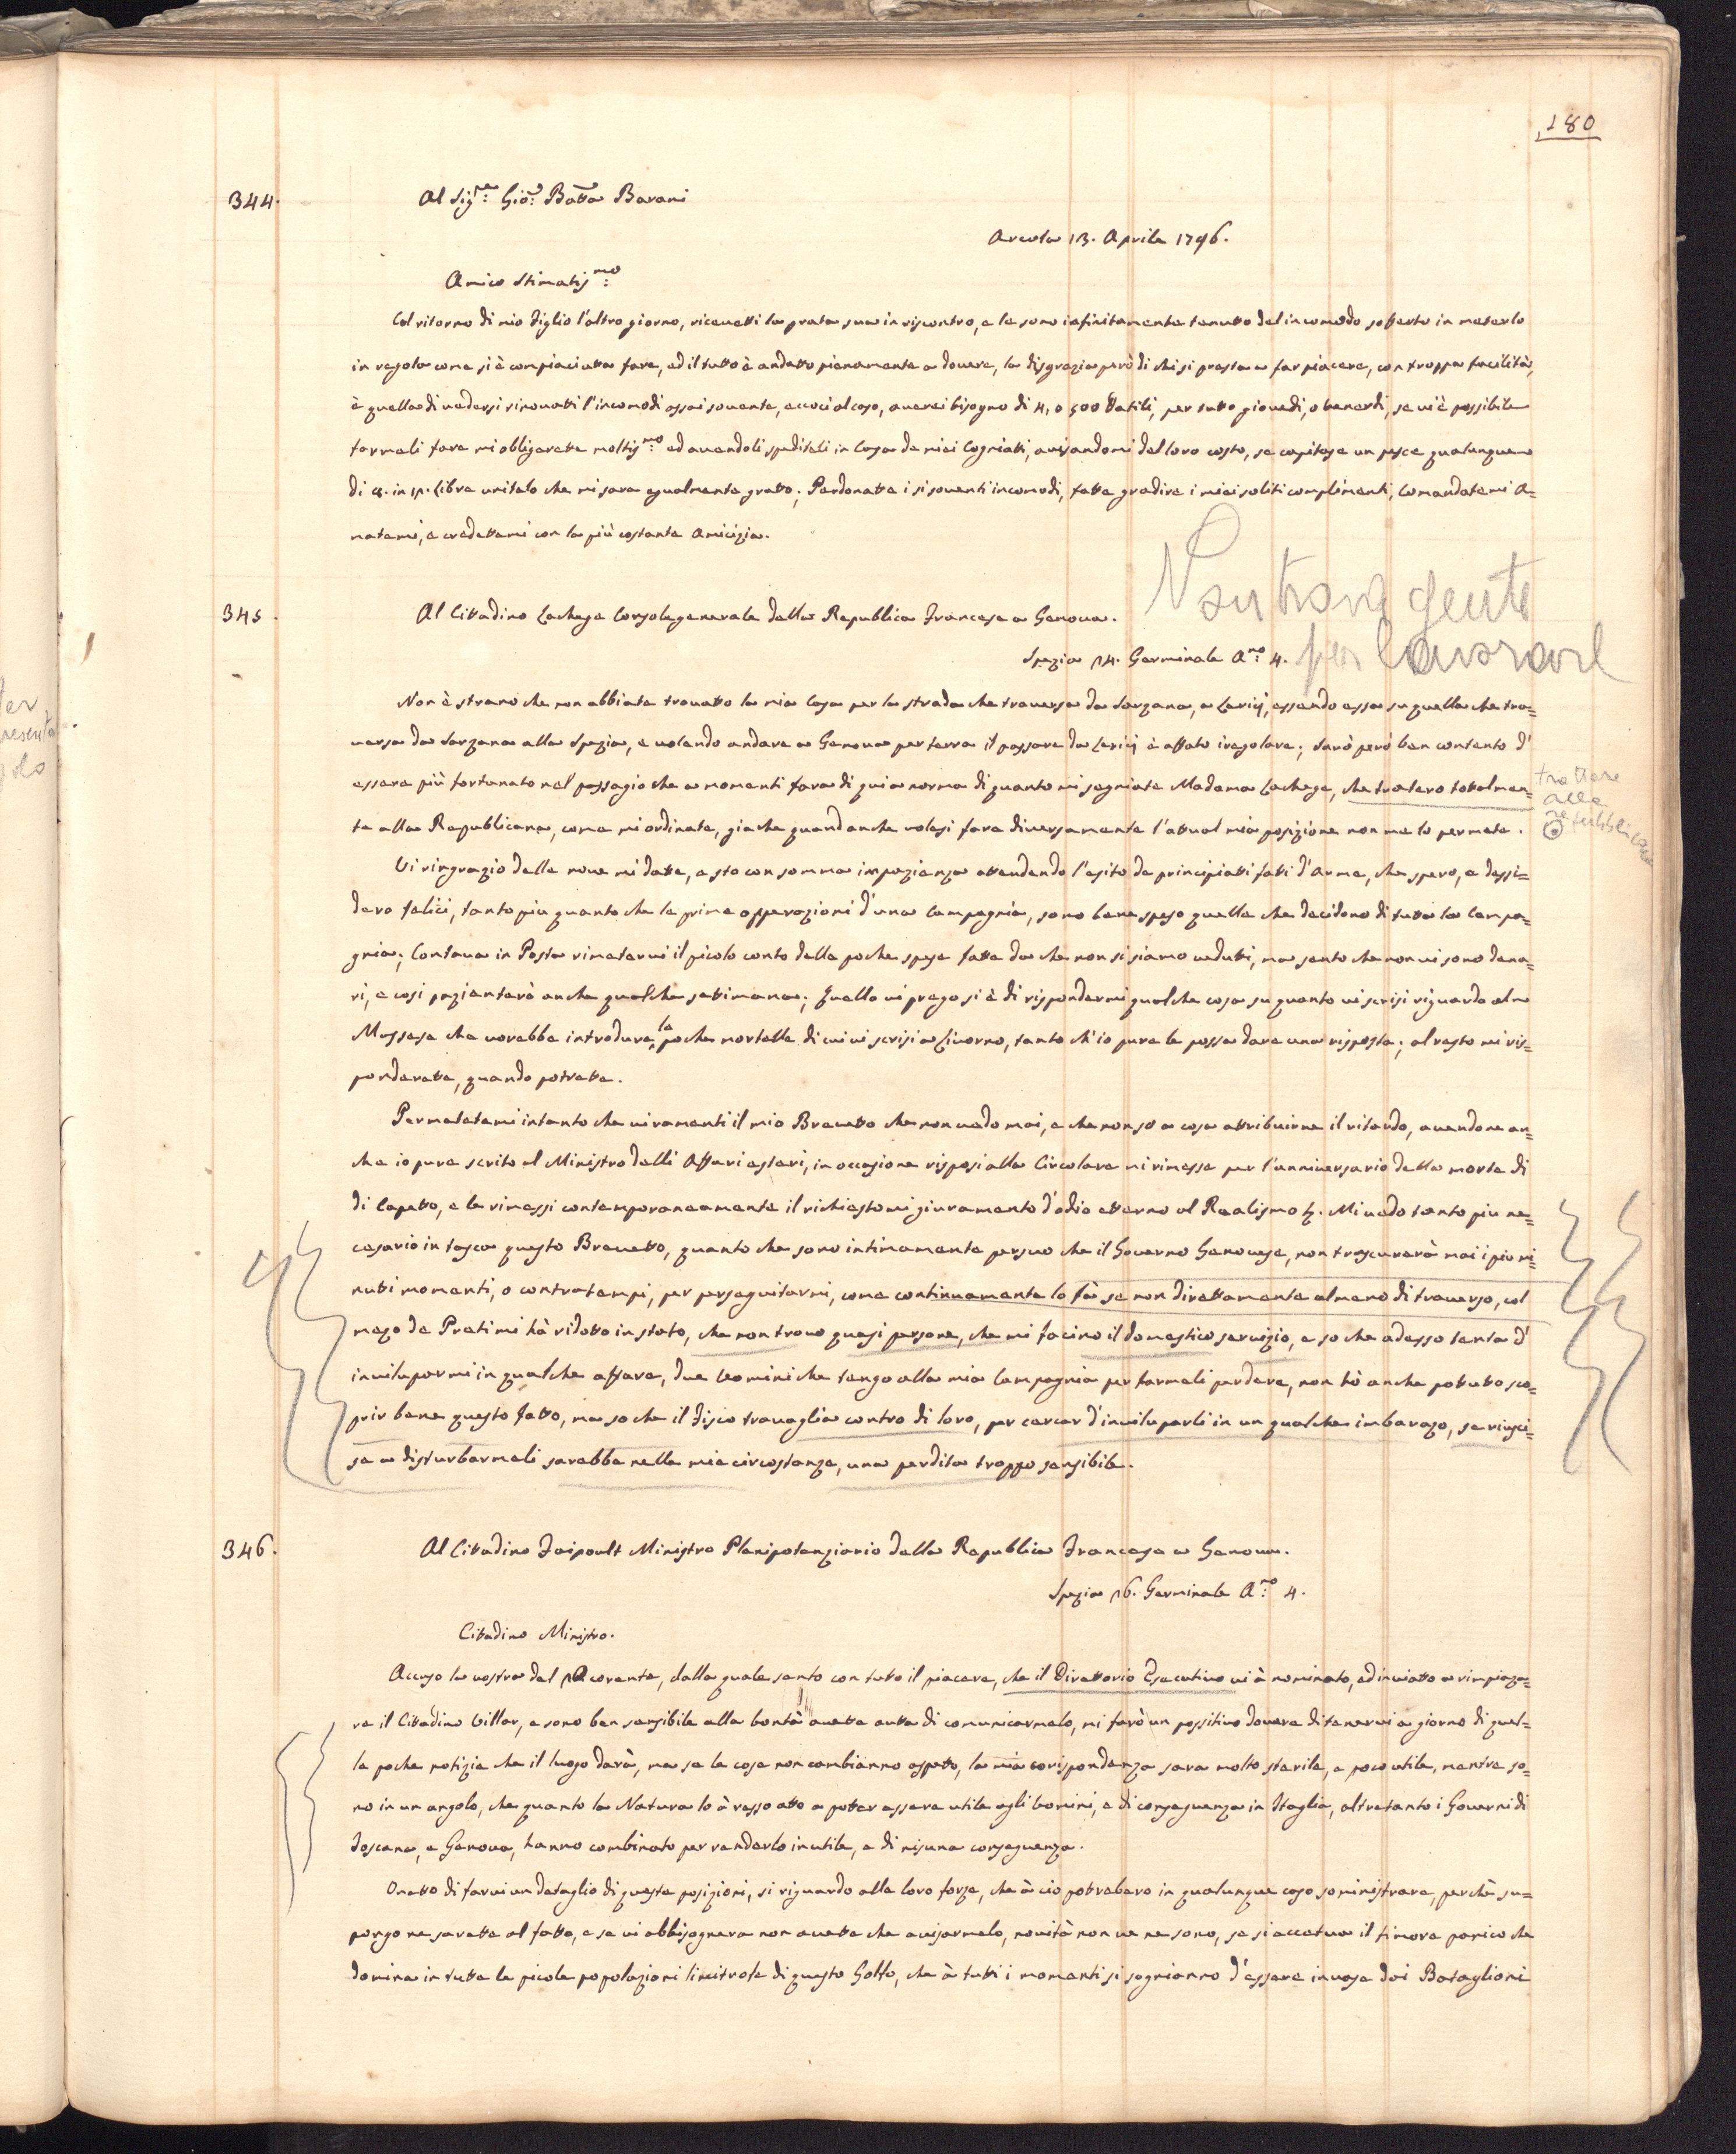 180
344.
Al Sig.re Gio: Batta Barani
Arcola 13. Aprile 1796.
Amico Stimatis.mo
Col ritorno di mio Figlio l'altro giorno, ricevetti la grata sua in riscontro, e le sono infinitamente tenutto del incomodo soferto in meterlo
in regola come si è compiaciutta fare, ed il tutto è andatto pienamente a dovere, la disgrazia però di chi si presta a far piacere, con troppa facilità,
è quella di vedersi rinovatti l'incomodi assai sovente, eccoci al caso, averei bisogno di 4, o 500 Datili, per tutto giovedì, o venerdì, se vi è possibile
farmeli fare mi obligarete moltis.mo ed avendoli spediteli in Casa de miei Cogniatti, avisandomi del loro costo, se capitase un pesce qualunque
di in Libre unitelo che mi sara egualmente gratto; Perdonatte i si soventi incomodi, fatte gradire i miei soliti complimenti, Comandatemi A=
matemi, e credettemi con la più costante Amicizia.
345.
Al Cittadino Lachese Consolegenerale della Republica Francese a Genova.
Non trova gente
per lavorare
Spezia 14. Germinale A.no 4.
Non è strano che non abbiate trovatto la mia Casa per la strada che traversa da Sarzana, a Larici, essendo essa su quella che tra=
versa da Sarzana alla Spezia, e volendo andare a Genova per terra il passare da Lerici è affato iregolare; Sarò però ben contento d'
essere più fortunato nel passagio che a momenti fara di qui a norma di quanto mi segniate Madama Lachese, che tratero totalmen=
trattare
alla
republicana
te alla Republicana, come mi ordinate, giache quand'anche volesi fare diversamente l'attual mia posizione non me lo permete.
Vi ringrazio delle nove mi datte, e sto con somma impazienza attendendo l'esito de principiatti fatti d'Arme, che spero, e dessi=
dero felici, tanto piu quanto che le prime opperazioni d'una Campagnia, sono bene speso quelle che decidono di tutta la Campa=
gnia; Contava in Posta rimetervi il picolo conto delle poche spese fatte da che non si siamo veduti, ma sento che non vi sono dena=
ri, e cosi pazienterò anche qualche setimana; Quello vi prego si è di rispondermi qualche cosa su quanto vi scrisi riguardo al
Massese che vorebbe introdure le poche mortelle di cui vi scrisi a Livorno, tanto ch'io pure le possa dare una risposta; al resto mi ris=
ponderette, quando potrette.
Permetetemi intanto che vi ramenti il mio Brevetto che non vedo mai, e che non so a cosa attribuirne il ritardo, avendone an=
che io pure scrito al Ministro delli Affari esteri, in occasione risposi alla Circolare mi rimesse per l'anniversario della morte di
di Capetto, e le rimessi contemporaneamente il richiestomi giuramento d'odio etterno al Realismo &. Mi vedo tanto piu ne=
cesario in tasca questo Brevetto, quanto che sono intimamente persuo che il Governo Genovese, non trascurerà mai i piu mi=
nuti momenti, o contratempi, per perseguitarmi, come continuamente lo fà se non direttamente almeno di traverso, col
mezo de Preti mi hà ridotto in stato, che non trovo quasi persone, che mi facino il domestico servizio, e so che adesso tenta d'
invilupormi in qualche affare, due Uomini che tengo alla mia Campagnia per farmeli perdere, non hò anche potutto sco=
prir bene questo Fatto, ma so che il Fisco travaglia contro di loro, per cercar d'invilupparli in un qualche imbarazo, se riusci=
se a disturbarmeli sarebbe nelle mie circostanze, una perdita troppo sensibile.
346.
Al Cittadino Faipoult Ministro Plenipotenziario della Republica Francese a Genova.
Spezia 16. Germinale A.no 4.
Cittadino Ministro.
Accuso la vostra del corente, dalla quale sento con tutto il piacere, che il Direttorio Esecutivo vi à nominato, ed inviatto a rimpiaza=
re il Cittadino Villar, e sono ben sensibile alla bontà avette auta di comunicarmelo, mi farò un possitivo dovere di tenervi a giorno di quel=
le poche notizie che il luogo darà, ma se le cose non cambianno aspetto, la mia corispondenza sara molto sterile, e poco utile, mentre so=
no in un angolo, che quanto la Natura lo à resso atto a potter essere utile agli Uomini, e di conseguenza in Itaglia, altretanto i Governi di
Toscana, e Genova, hanno combinato per renderlo inutile, e di nisuna conseguenza.
Ometto di farvi un detaglio di queste posizioni, si riguardo alle loro forze, che à ciò potrebero in qualunque caso soministrare, perchè su=
pongo ne sarette al fatto, e se vi abbisognera non avette che avisarmelo, novità non ve ne sono, se si accetua il timore panico che
domina in tutte le picole popolazioni limitrofe di questo Golfo, che à tutti i momenti si sognianno d'essere invase dai Bataglioni